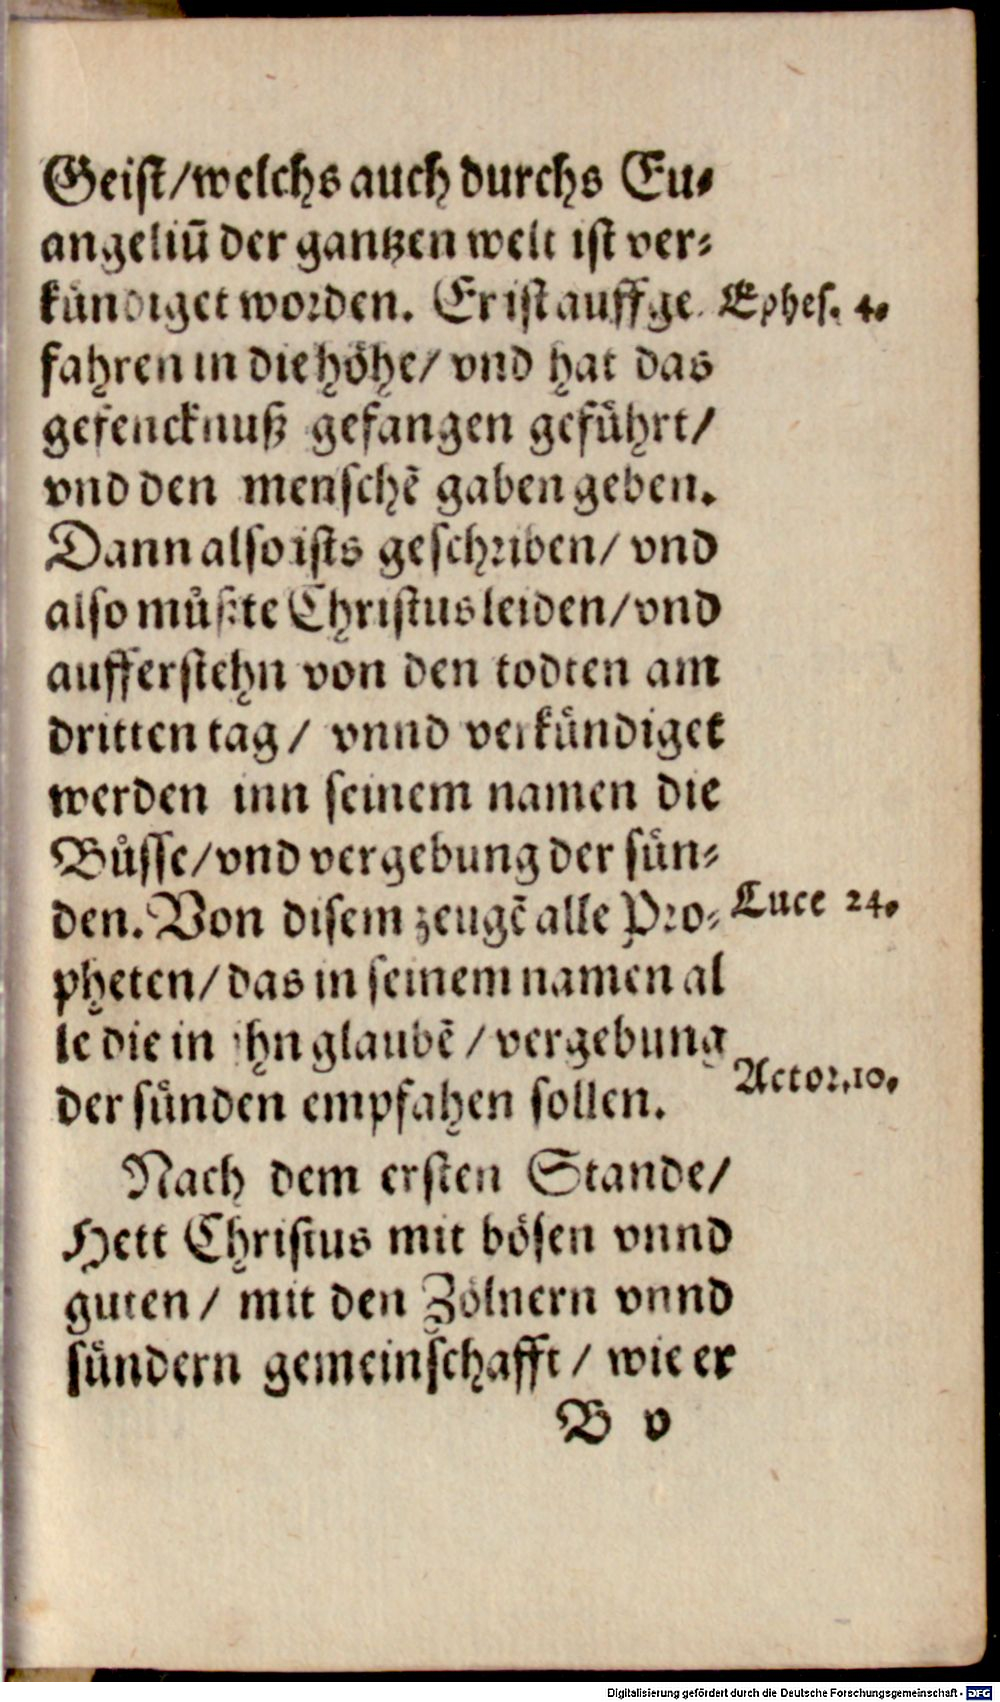 Geist/welchs auch durchs Eu⸗
angeliū der gantzen welt ist ver⸗
kündiget worden. Er ist auffge
Ephes. 4.
fahren in die höhe/ vnd hat das
gefencknuß gefangen geführt/
vnd den menschē gaben geben.
Dann also ists geschriben/ vnd
also müßte Christus leiden/vnd
aufferstehn von den todten am
dritten tag/ vnnd verkündiget
werden inn seinem namen die
Bůsse/vnd vergebung der sün⸗
den. Von disem zeugē alle Pro⸗
Luce 24.
pheten/das in seinem namen al
le die in ihn glaubē/vergebung
Actor. 10.
der sünden empfahen sollen.
Nach dem ersten Stande/
Hett Christus mit bösen vnnd
guten/ mit den Zölnern vnnd
sündern gemeinschafft/ wie er
B v
Digitalisierung gefördert durch die Deutsche Forschungsgemeinschaft - DFG